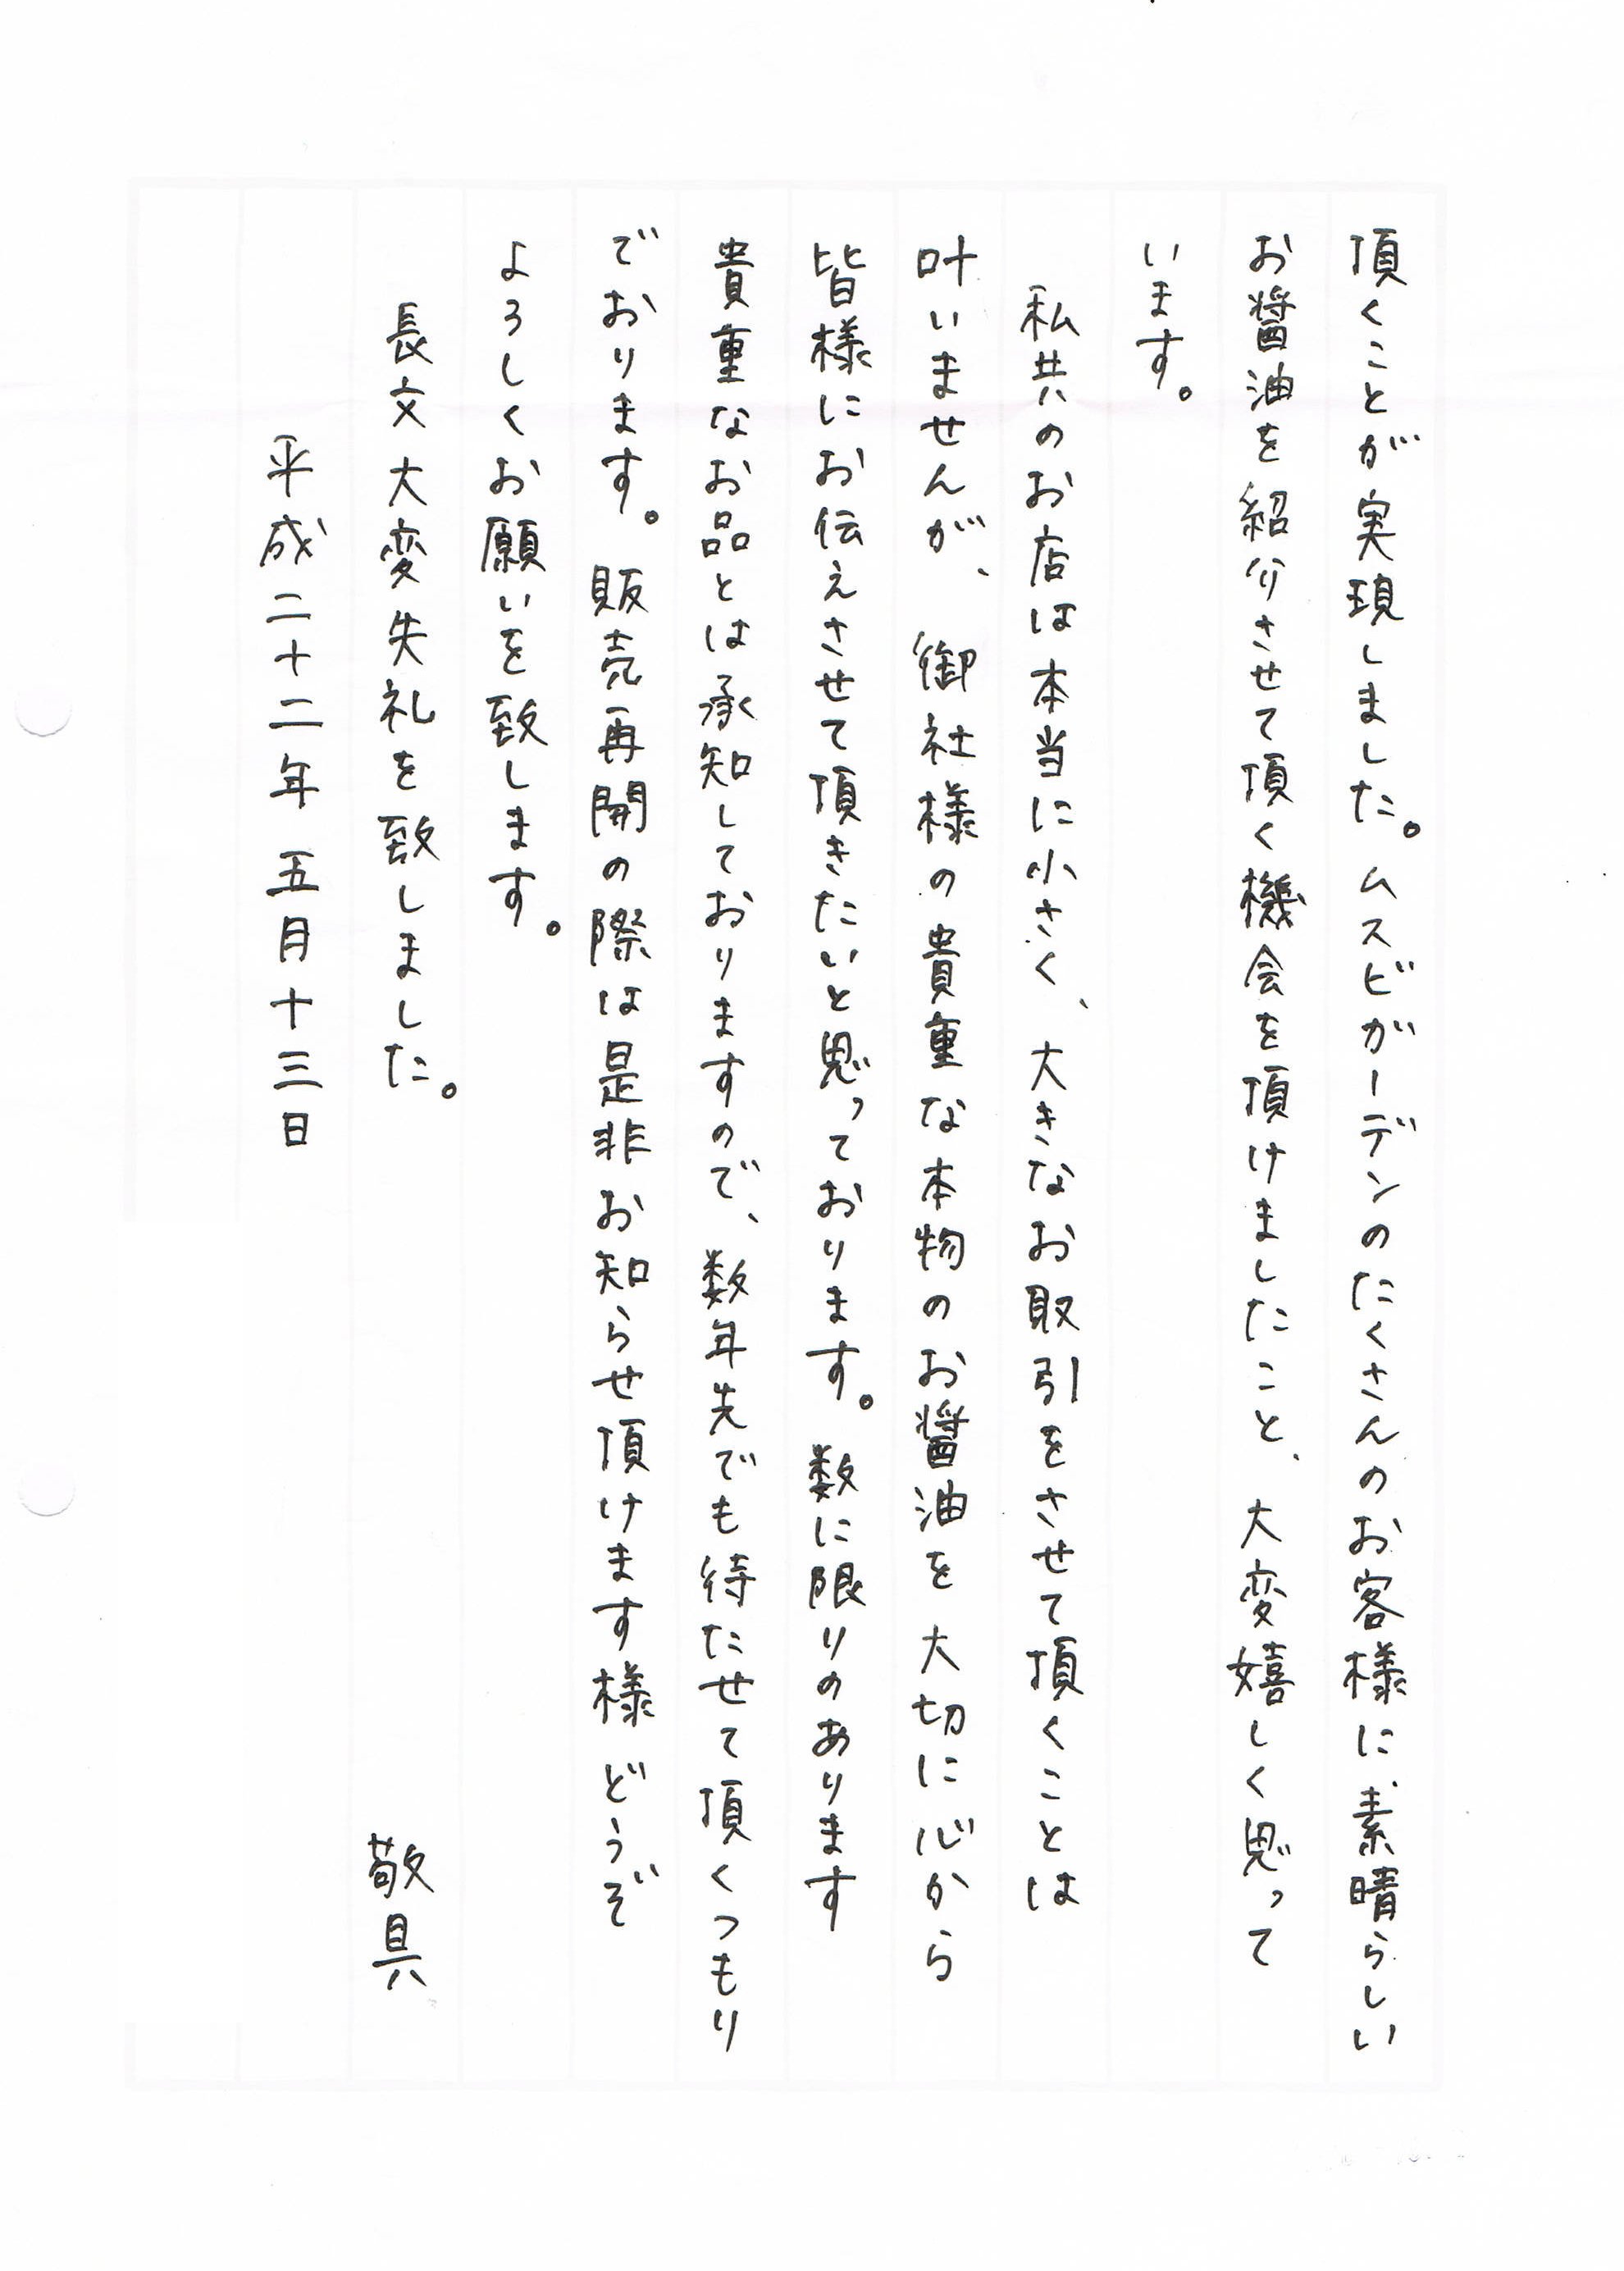 頂くことが実現しました。ムスビガーデンのたくさんのお客様に素晴らしい
お醤油を紹介させて頂く機会を頂けましたこと、大変嬉しく思って
います。
私共のお店は本当に小さく、大きなお取引をさせて頂くことは
叶いませんが、御社様の貴重な本物のお醤油を大切に心から
皆様にお伝えさせて頂きたいと思っております。数に限りのあります
貴重なお品とは承知しておりますので、数年先でも待たせて頂くつもり
でおります。販売再開の際は是非お知らせ頂けます様どうぞ
よろしくお願いを致します。
長文大変失礼を致しました。
敬具
平成二十二年五月十三日